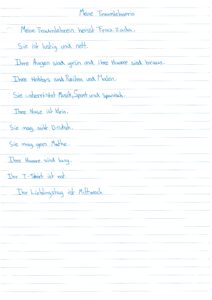 Meine Traumlehrerin
Meine Traumlehrerin heisst Frau
Sie ist lustig und nett.
Ihre Augen sind grün und ihre Haare sind braun.
Ihre Hobbys sind Reiten und Malen.
Sie unterrichtet Musik, Sport und Spanisch.
Ihre Nase ist klein.
Sie mag nicht Deutsch.
Sie mag gern Mathe.
Ihre Haare sind lang.
Ihr T-Shirt ist rot.
Ihr Lieblingstag ist Mittwoch.